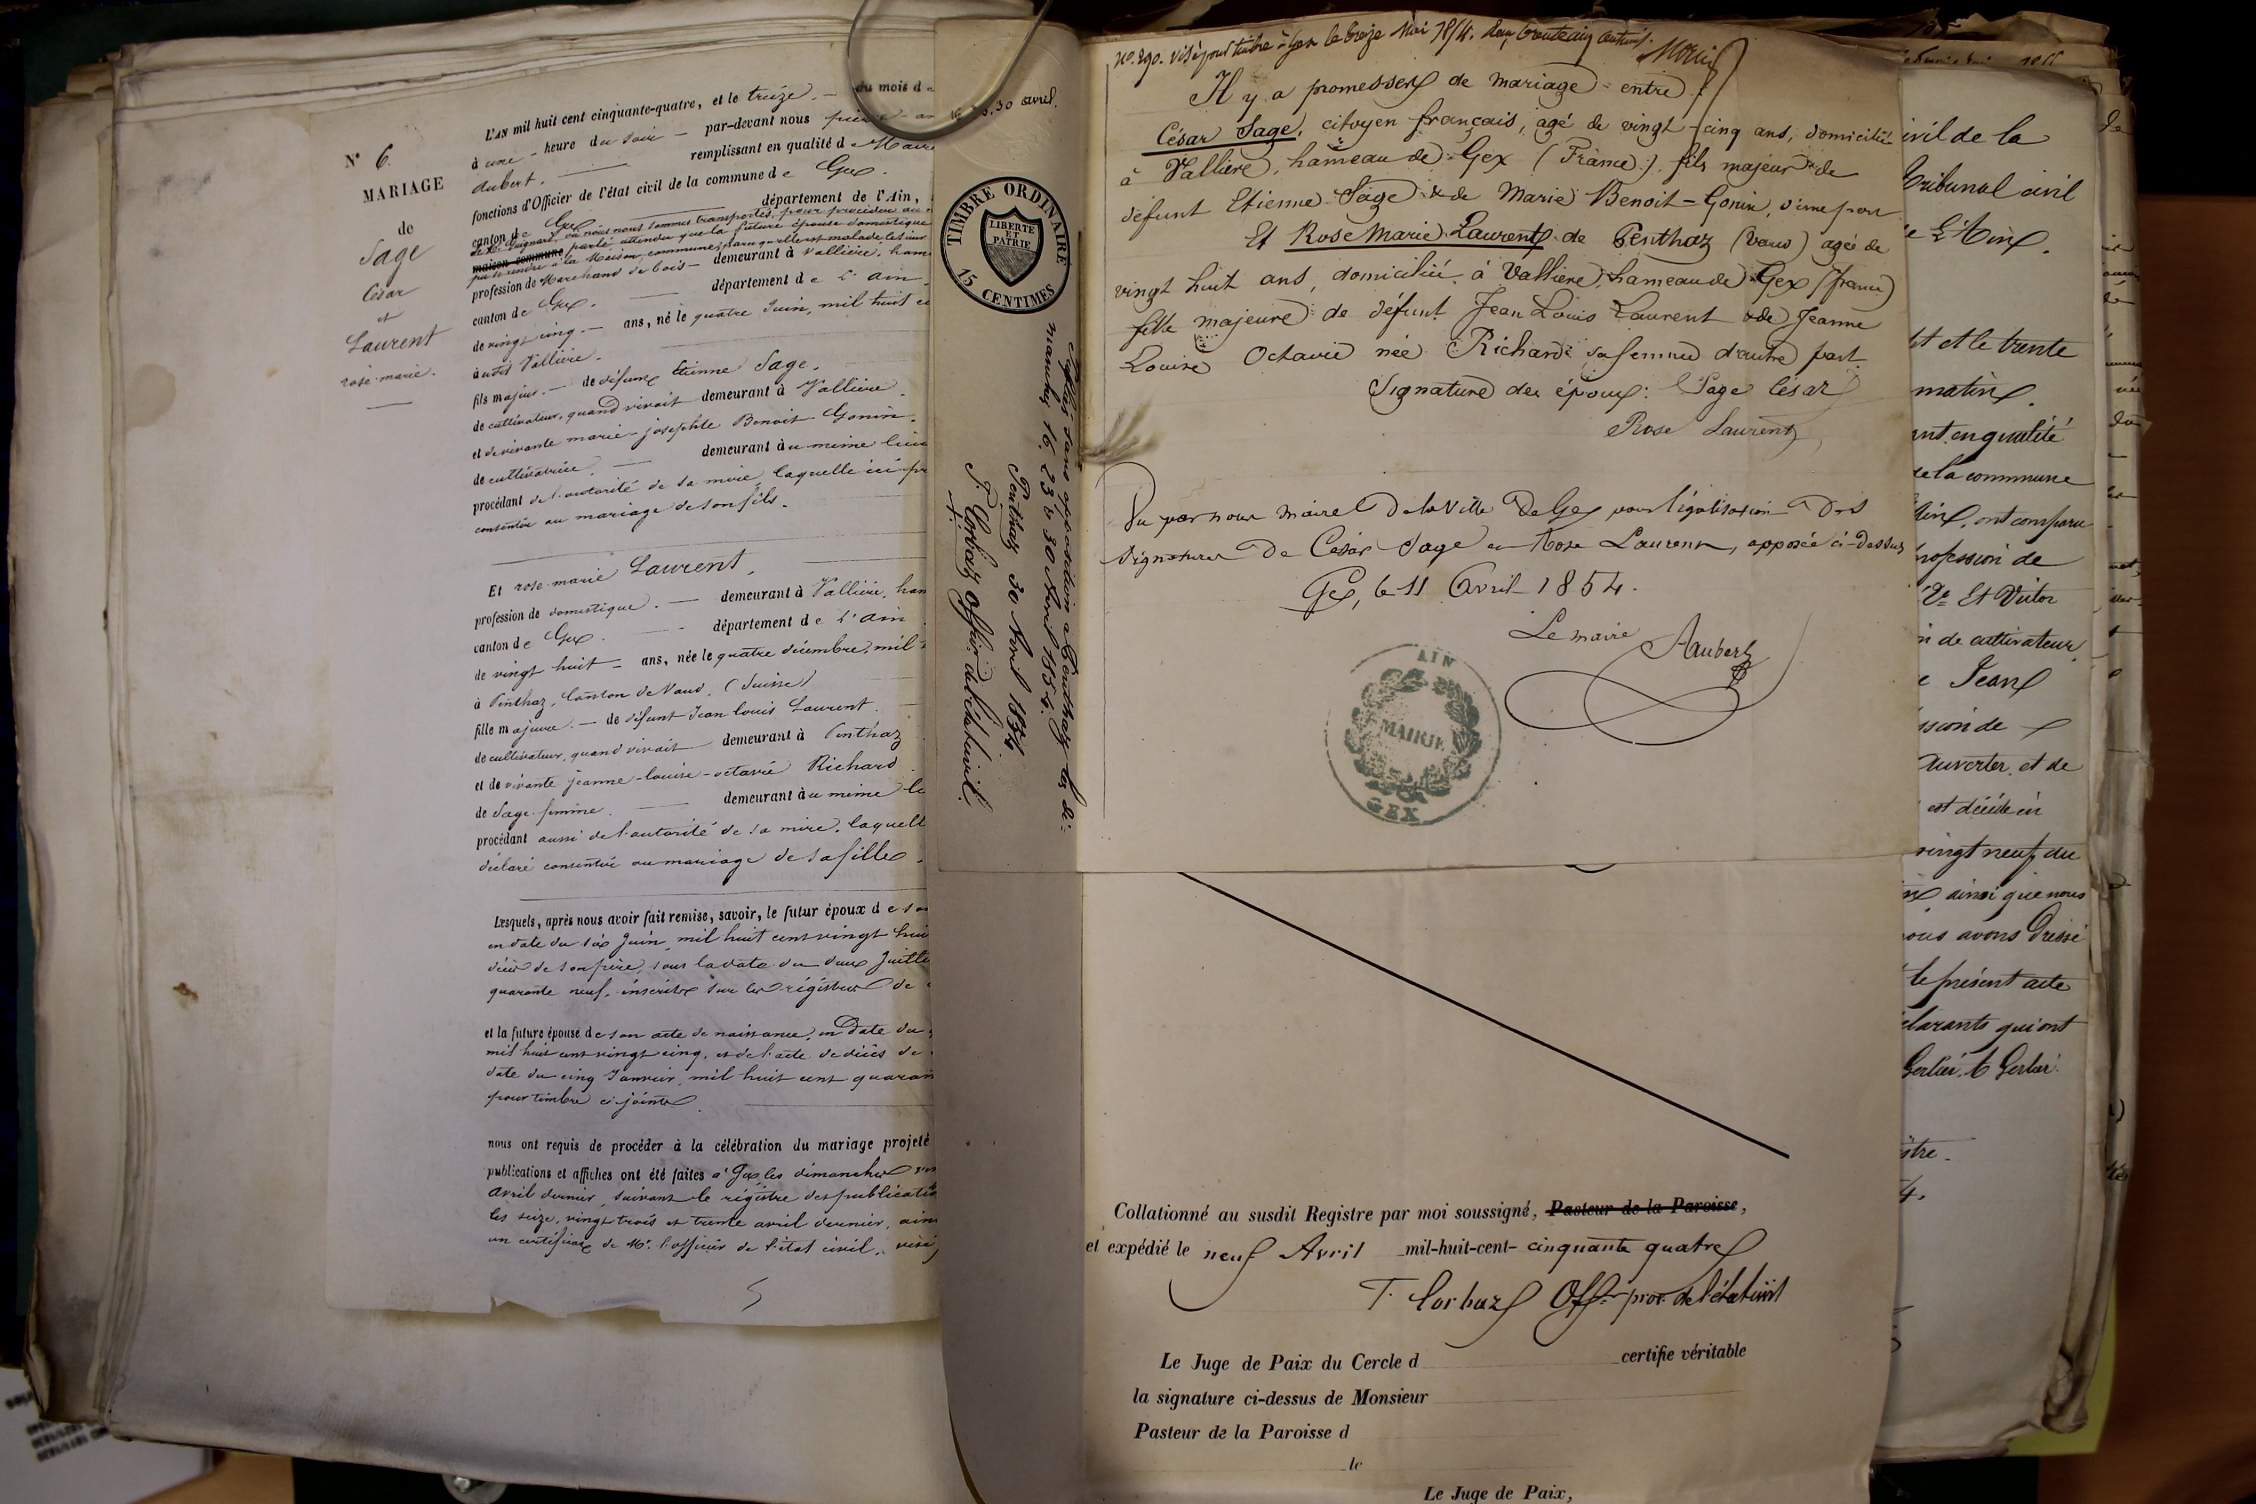 N° 6.
MARIAGE
de
Sage
César
et
Laurent
rose-marie.
L'AN mil huit cent cinquante-quatre, et le treize. — du mois d
à une - heure du soir — par-devant nous pierre
Aubert. — remplissant en qualité de Maire
fonctions d'Officier de l'état civil de la commune de Gex.
département de l'Ain,
canton de Gex où nous nous sommes transportés, pour procéder au
parlé, attendu que la future épouse domestique
maison commune
se rendre à la Maison commune, parce qu'elle est malade,
profession de Marchand de bois — demeurant à Vallière, ham
canton de Gex. — département de l'ain
de vingt cinq — ans, né le quatre Juin, mil huit c
audit Vallière.
fils majeur. — de défunt Etienne Sage.
de cultivateur, quand vivait demeurant à Vallière
et de vivante marie-josephte Benoit Gonin.
de cultivatrice. — demeurant au même lieu
procédant de l'autorité de sa mère, laquelle ici pr
consentir au mariage de son fils.
Et rose-marie Laurent.
profession de domestique. — demeurant à Vallière, ham
canton de Gex. — département de l'ain
de vingt huit — ans, née le quatre décembre, mil
à Penthaz, Canton de Vaud. (Suisse)
fille majeure. — de défunt Jean Louis Laurent.
de cultivateur, quand vivait demeurant à Penthaz
et de vivante jeanne-louise-octavie Richard
de Sage-femme. — demeurant au même l
procédant aussi de l'autorité de sa mère, laquell
déclaré consentir au mariage de sa fille.
Lesquels, après nous avoir fait remise, savoir, le futur époux de s
en date du six Juin, mil huit cent vingt hui
décès de son père, sous la date du deux Juille
quarante neuf, inscrits sur les régistres de
et la future épouse de son acte de naissance, en date du
mil huit cent vingt cinq, et de l'acte de décès de
date du cinq Janvier, mil huit cent quaran
pour timbre ci-jointe
nous ont requis de procéder à la célébration du mariage projeté
publications et affiches ont été faites à Gex les dimanches
avril dernier, suivant le régistre des publicati
les seize, vingt trois et trente avril dernier, ain
un certificat de Mr. l'officier de l'état civil, visé
30 avril.
TIMBRE ORDINAIRE
LIBERTÉ
ET
PATRIE
15 CENTIMES
Publié sans opposition à Penthaz les di-
manches 16, 23 & 30 Avril 1854.
Penthaz 30 Avril 1854
F. Corbaz Offr. de l'état civil.
No. 290. Visé pour timbre à Gex le treize Mai 1854. trente cinq centimes.
Il y a promesses de mariage entre
César Sage, citoyen français, agé de vingt-cinq ans, domicilié
à Vallière, hameau de Gex (France) fils majeur de
défunt Etienne Sage & de Marie Benoit-Gonin, d'une part
Et Rose Marie Laurent de Penthaz (Vaud) agée de
vingt huit ans, domiciliée à Vallière, hameau de Gex (france)
fille majeure de défunt Jean Louis Laurent & de Jeanne
Louise Octavie née Richard sa femme d'autre part.
Signature des époux: Sage César
Rose Laurent
Vu par nous maire De la Ville De Gex pour légalisation Des
signatures De César Sage et Rose Laurent, apposée ci-dessus
Gex, le 11 Avril 1854.
Le maire Aubert
AIN
MAIRIE
GEX
Collationné au susdit Registre par moi soussigné, Pasteur de la Paroisse,
et expédié le neuf Avril mil-huit-cent- cinquante quatre
F. Corbaz Offr. prov. de l'état civil
Le Juge de Paix du Cercle d certifie véritable
la signature ci-dessus de Monsieur
Pasteur de la Paroisse d
le
Le Juge de Paix,
ivil de la
Tribunal civil
e L'Ain.
et le trente
matin.
ant en qualité
de la commune
Ain, ont comparu
profession de
Ve Et Victor
n de cultivateur,
e Jean
ssion de
et de
est décédé en
vingt neuf du
ainsi que nous
ous avons Dressé
le présent acte
clarants qui ont
Gerlier.
istre.
4.